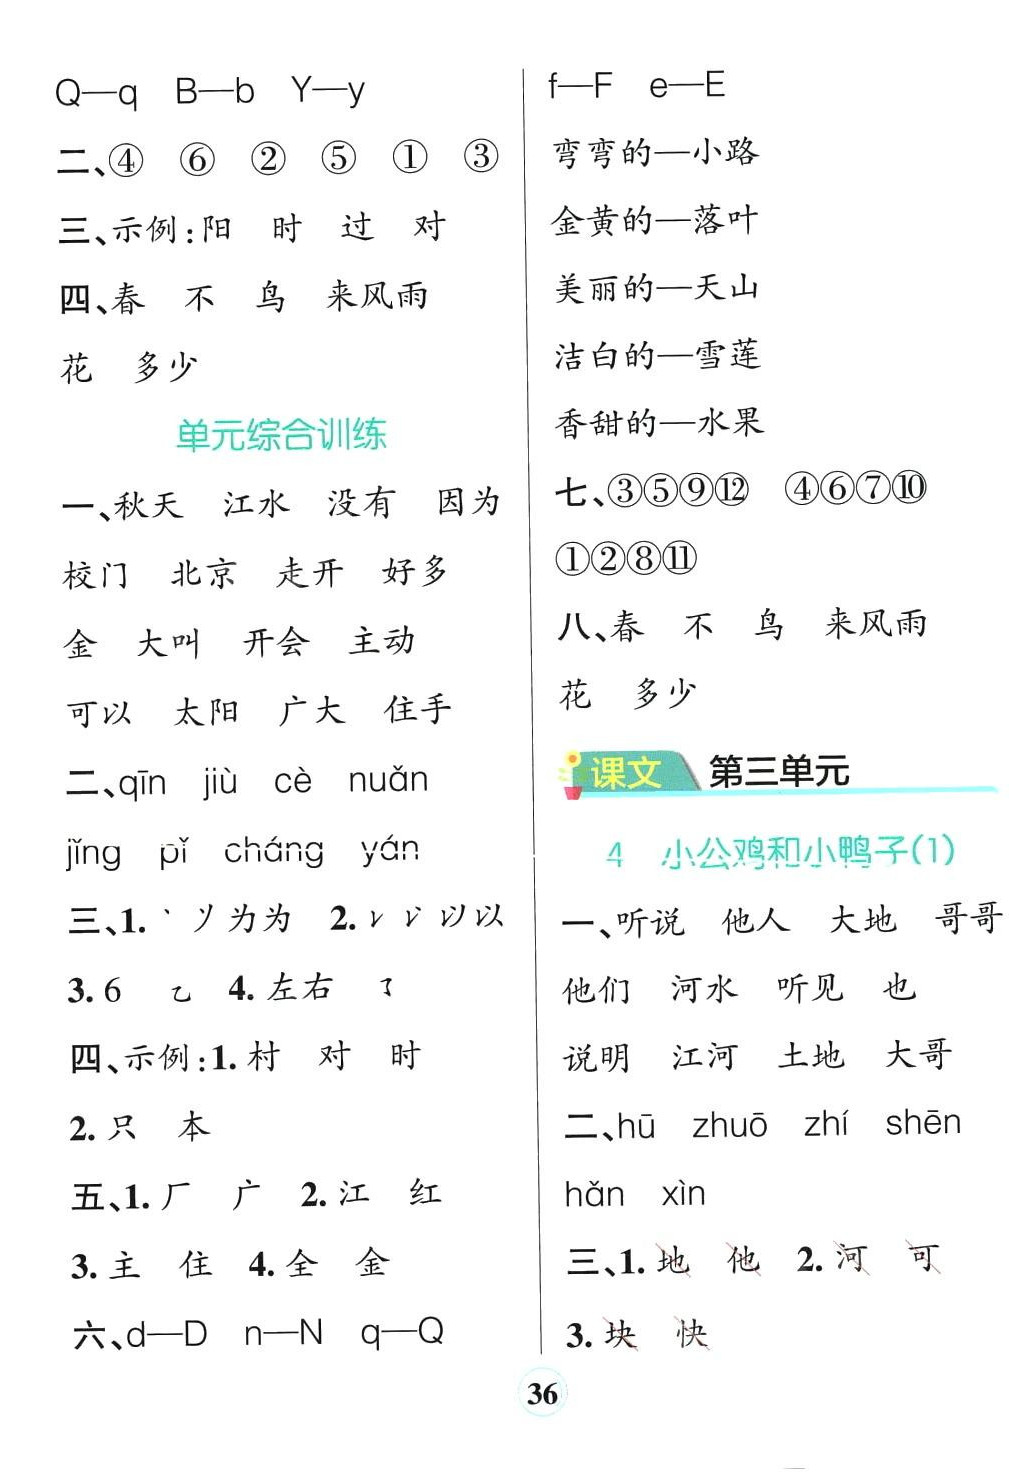 Q—q B—b Y—y
二、④ ⑥ ② ⑤ ① ③
三、示例:阳 时 过 对
四、春 不 鸟 来风雨
花 多少
单元综合训练
一、秋天 江水 没有 因为
校门 北京 走开 好多
金 大叫 开会 主动
可以 太阳 广大 住手
二、qīn jiù cè nuǎn
jǐng pǐ cháng yán
三、1. 丶 丷 为 为 2. 𠄌 以 以
3. 6 乙 4. 左右 ㇋
四、示例:1. 村 对 时
2. 只 本
五、1. 厂 广 2. 江 红
3. 主 住 4. 全 金
六、d—D n—N q—Q
f—F e—E
弯弯的—小路
金黄的—落叶
美丽的—天山
洁白的—雪莲
香甜的—水果
七、③⑤⑨⑫ ④⑥⑦⑩
①②⑧⑪
八、春 不 鸟 来风雨
花 多少
课文 第三单元
4 小公鸡和小鸭子(1)
一、听说 他人 大地 哥哥
他们 河水 听见 也
说明 江河 土地 大哥
二、hū zhuō zhí shēn
hǎn xìn
三、1. 地 他 2. 河 可
3. 块 快
36